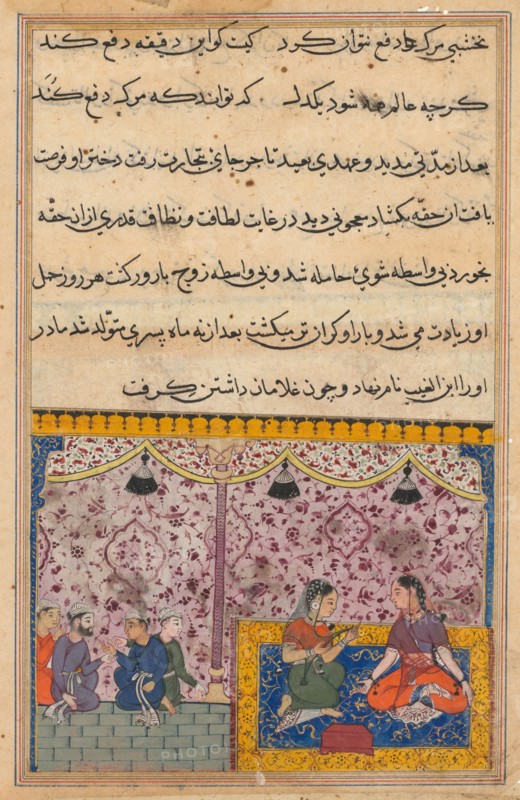 نخشبي مرک دفع نتوان کرد کیت کو این دقیقه دفع کند
کرچه عالم همه شود یکدل که تواند که مرک دفع کند
بعد از مدّتي مدید و عهدي بعید تاجر جاي تجارت رفت دختر او فرصت
یافت ان حقّه بکشاد معجوني دید در غایت لطافت و نظافت قدري از ان حقّه
بخورد بي واسطه شوي حامله شد و بي واسطه زوج بارور کشت هر روز حمل
او زیادت مي شد و بار او کران تر میکشت بعد از نه ماه پسري متولّد شد مادر
او را ابن الغیب نام نهاد و چون غلامان داشتن کرفت